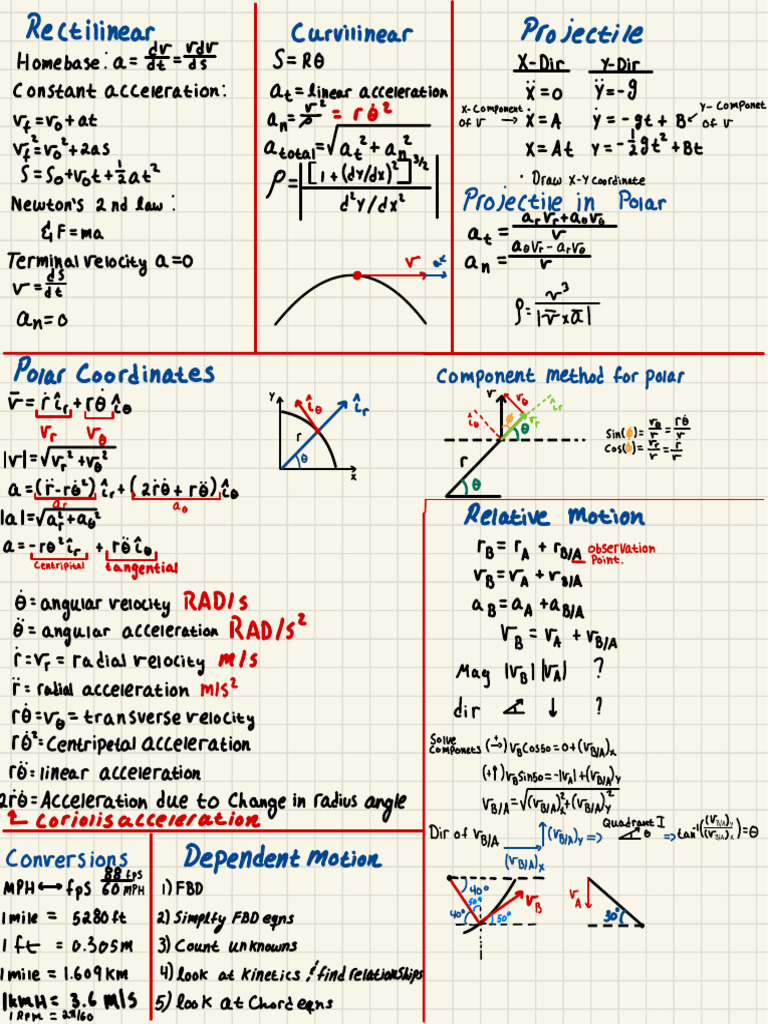 Rectilinear
Homebase: a = dv/dt = vdv/ds
Constant acceleration:
v_f = v_0 + at
v_f² = v_0² + 2as
S = S_0 + v_0t + 1/2 at²
Newton's 2nd law:
ΣF = ma
Terminal velocity a = 0
v = ds/dt
a_n = 0
Curvilinear
S = Rθ
a_t = linear acceleration
a_n = v²/ρ = rθ̇²
a_total = √(a_t² + a_n²)
ρ = |[1 + (dy/dx)²]^3/2 / d²y/dx²|
v
a_t
Projectile
X-Dir Y-Dir
ẍ = 0 ÿ = -g
X-Component of v → ẋ = A ẏ = -gt + B ← Y-Componet of v
X = At Y = -1/2 gt² + Bt
· Draw X-Y Coordinate
Projectile in Polar
a_t = (a_r v_r + a_θ v_θ)/v
a_n = (a_θ v_r - a_r v_θ)/v
ρ = v³/|v̄ x ā|
Polar Coordinates
v̄ = ṙ î_r + rθ̇ î_θ
v_r v_θ
|v| = √(v_r² + v_θ²)
a = (r̈ - rθ̇²) î_r + (2ṙθ̇ + rθ̈) î_θ
a_r a_θ
|a| = √(a_r² + a_θ²)
a = -rθ̇² î_r + rθ̈ î_θ
Centripital tangential
Y
î_θ
î_r
r
θ
x
θ̇ = angular velocity RAD/s
θ̈ = angular acceleration RAD/s²
ṙ = v_r = radial velocity m/s
r̈ = radial acceleration m/s²
rθ̇ = v_θ = transverse velocity
rθ̇² = Centripetal acceleration
rθ̈ = linear acceleration
2ṙθ̇ = Acceleration due to Change in radius angle
Coriolis acceleration
Component method for polar
v
v_θ
î_r
î_θ
ϕ
v_r
θ
r
θ
Sin(ϕ) = v_θ/v = rθ̇/v
Cos(ϕ) = v_r/v = ṙ/v
Relative Motion
r_B = r_A + r_B/A observation Point.
v_B = v_A + v_B/A
a_B = a_A + a_B/A
v_B = v_A + v_B/A
Mag |v_B| |v_A| ?
dir ↓ ?
Solve Componets (→+) v_B Cos50 = 0 + (v_B/A)_x
(+↑) v_B Sin50 = -|v_A| + (v_B/A)_y
v_B/A = √((v_B/A)_x² + (v_B/A)_y²)
Dir of v_B/A (v_B/A)_x (v_B/A)_y => Quadrant I θ => tan⁻¹((v_B/A)_y/(v_B/A)_x) = θ
40°
50°
40°
50°
v_B
v_A
30°
Conversions
MPH ↔ fps 88 fps/60 MPH
1 mile = 5280 ft
1 ft = 0.305m
1 mile = 1.609 Km
1KmH = 3.6 m/s
1 Rpm = 2π/60
Dependent Motion
1) FBD
2) Simplfy FBD eqns
3) Count unknowns
4) look at Kinetics & find relationships
5) look at Chord eqns